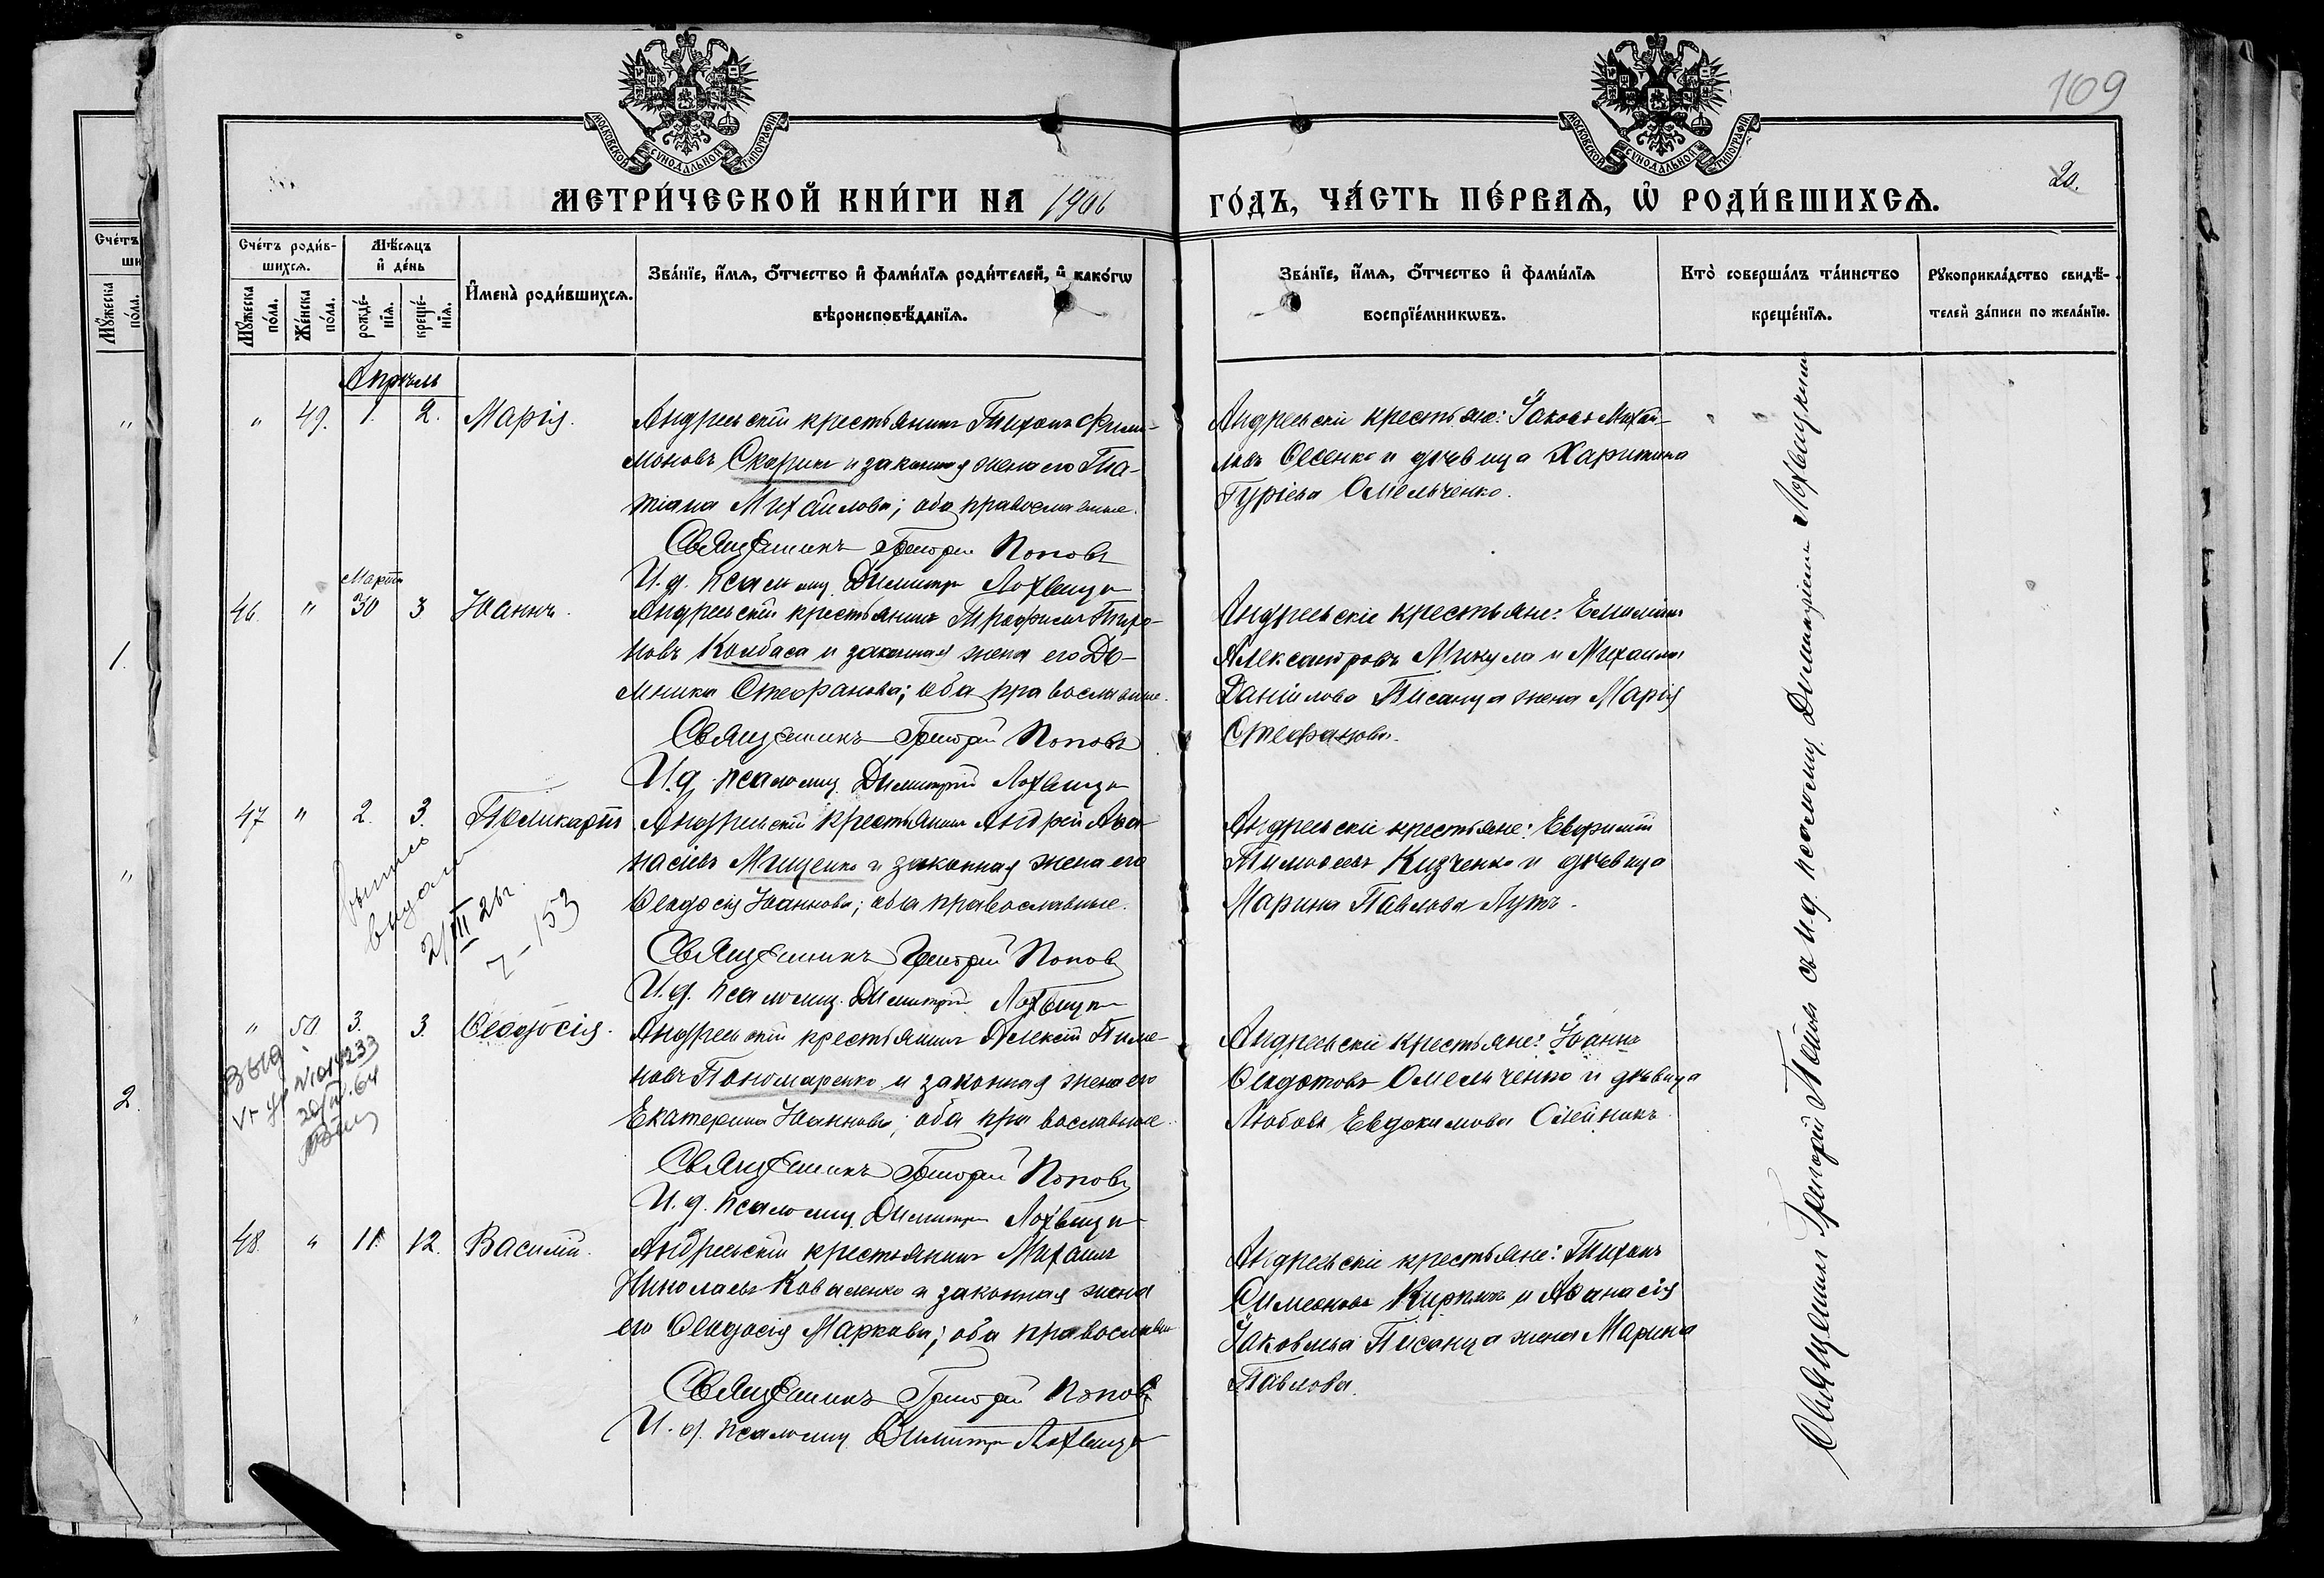 109
20.
МОСКОВСКОЙ СѴНОДАЛЬНОЙ ТИПОГРАФІИ
МОСКОВСКОЙ СѴНОДАЛЬНОЙ ТИПОГРАФІИ
МЕТРИ́ЧЕСКОЙ КНИ́ГИ НА 1906
ГО́ДЪ, ЧА́СТЬ ПЕ́РВАЯ, Ѡ РОДИ́ВШИХСЯ.
Сче́тъ роди́в-
шихся.
Мѣ́сяцъ
и де́нь
Му́жеска по́ла.
Же́нска по́ла.
рожде́-нїя.
креще́-нїя.
Имена̀ роди́вшихся.
Зва́нїе, и́мя, о́тчество и фами́лїя роди́телей, и како́гѡ
вѣроисповѣ́данїя.
Зва́нїе, и́мя, о́тчество и фами́лїя
воспрїе́мникѡвъ.
Кто̀ соверша́лъ та́инство
креще́нїя.
Рꙋкоприкла́дство свидѣ́-
телей за́писи по жела́нїю.
Апрѣль
" 49. 1. 2. Марія.
Андреевскій крестьянинъ Тихонъ Фили-
моновъ Скорикъ и законная жена его Та-
тіана Михайлова; оба православные.
Священникъ Григорій Поповъ
И. д. псаломщ. Димитрій Лохвицк
Андреевскіе крестьяне: Іаковъ Михай-
ловъ Евсенко и дѣвица Харитина
Гуріева Омельченко.
Мартъ
46. " 30 3 Іоаннъ.
Андреевскій крестьянинъ Трофимъ
новъ Колбаса и законная жена его До-
мника Стефанова; оба православные.
Священникъ Григорій Поповъ
И. д. псаломщ. Димитрій Лохвицк
Андреевскіе крестьяне: Емиліанъ
Александровъ Микула и Михаила
Даніилова Писанца жена Марія
Стефанова.
47 " 2. 3. Поликарпъ
Андреевскій крестьянинъ Андрей Аѳа-
насіевъ Мищенко и законная жена его
Ѳеодосія Іоаннова; оба православные.
Священникъ Григорій Поповъ
И. д. псаломщ. Димитрій Лохвицк
Андреевскіе крестьяне: Евфимій
Тимоѳеевъ Кизченко и дѣвица
Марина Павлова Лутъ.
выпись
видано
2/III 26г.
7-153
" 50 3. 3. Ѳеодосія.
Андреевскій крестьянинъ Алексій Пиме-
новъ Пономаренко и законная жена его
Екатерина Іоаннова; оба православные.
Священникъ Григорій Поповъ
И. д. псаломщ. Димитрій Лохвицк
Андреевскіе крестьяне: Іоаннъ
Ѳеодотовъ Омельченко и дѣвица
Любовь Евдокимова Олейникъ.
выд
48. " 11. 12. Василій.
Андреевскій крестьянинъ Михаилъ
Николаевъ Коваленко и законная жена
его Ѳеодосія Маркова; оба православн
Священникъ Григорій Поповъ
И. д. псаломщ. Димитрій Лохвицк
Андреевскіе крестьяне: Тихонъ
Симеоновъ Кирпилъ и Аѳанасія
Іаковлева Писанца жена Марина
Павлова.
Священникъ Григорій Поповъ съ и. д. псаломщ. Димитріемъ Лохвицкимъ